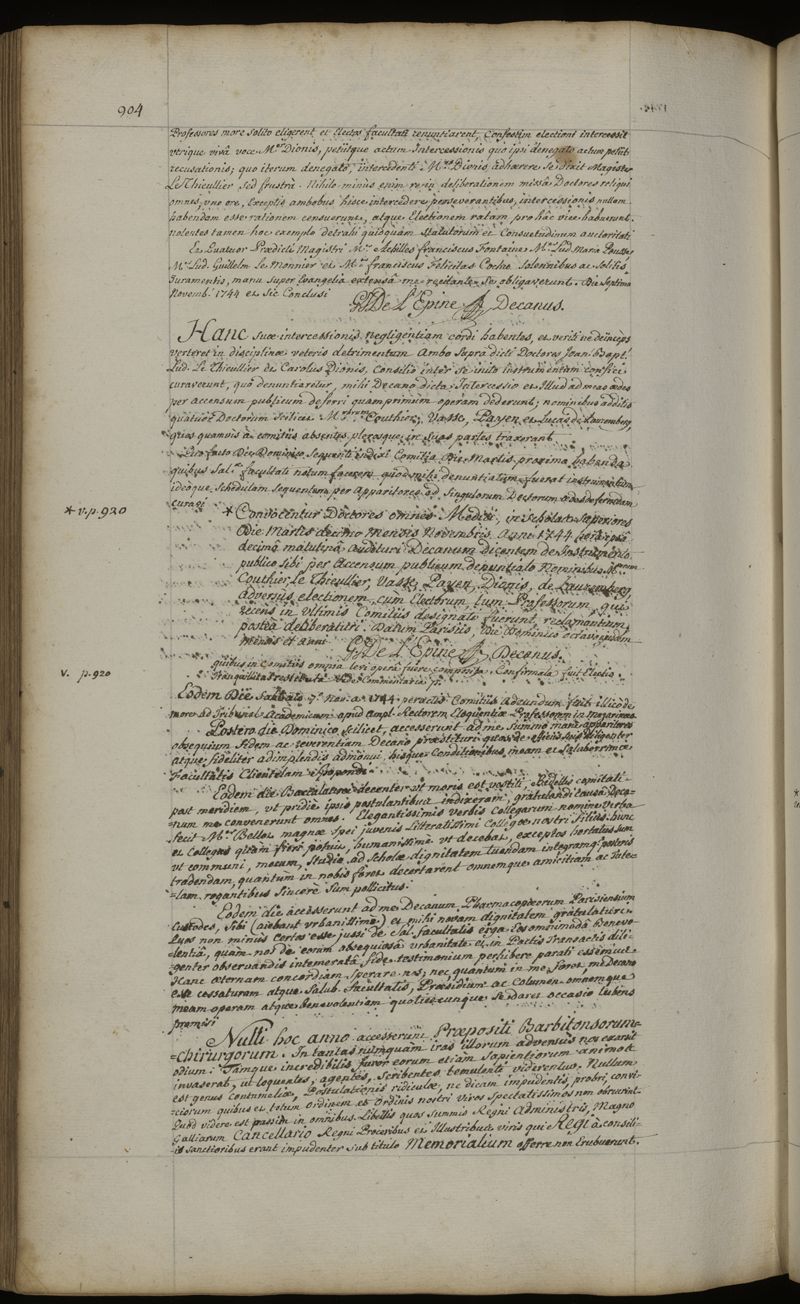 904
Professores more solito eligerent et Electos facultati renuntiarent, Confestim electioni intercessit
verique vivâ voce M.er Dionis, petiitque actum Intercessionis quo ipsi denegato actum petiit
recusationis; quo iterum denegato, intercedenti M.ro Dionis adhærere se dixit Magister
Le Thieullier sed frustrà. Nihilo minùs enim deliberationem missâ Doctores reliqui
omnes, uno ore, Exceptis ambobus hisce intercedere perseverantibus, intercessionis nullam
habendam esse rationem censuerunt, atque Electionem ratam pro hac vice habuerunt.
nolentes tamen hoc exemplo detrahi quidquam Statutorum et Consuetudinum auctoritati
Et Quatuor Prædicti Magistri M.er Achilles franciscus Fontaine, M.er Lud. Maria Pousse,
M.er Lud. Guillelm. Le Monnier et M.er franciscus Felicitas Cochu Solemnibus ac Solitis
Juramentis, manu super Evangelia extensâ me recitante se obligaverunt. Die Septima
Novemb. 1744 et sic Conclusi
G. De L'Epine Decanus.
Hanc suæ intercessionis negligentiam cordi habentes, et veriti ne deinceps
verteret in disciplinæ veteris detrimentum Ambo supra dicti Doctores Joan. Bapt.
Lud. Le Thieullier & Carolus Dionis, Consilio inter se inito Instrumentum confici
curaverunt, quò denuntiaretur, mihi Decano dicta Intercessio et Illud ad meas ædes
per accensum publicum deferri quamprimùm operam dederunt; nominibus additis
quatuor Doctorum scilicet M.rorum Couthier, Vasse, Payen et Lucas de Laurembert
quos quamvis à comitiis absentes, plerosque in suas partes traxerant.
Quo facto Die Dominico Sequenti indixi Comitia Die Martis proxima habenda
quibus Sal. facultati notum facerem quod mihi denuntiatum fuerat instrumentum
ideoque Schedulam Sequentem per Apparitores ad Singulorum Doctorum ædes deferendam
curavi
* v. p. 920
* Convocentur Doctores omnes Medici, in Scholas Superiores
Die Martis decimo Mensis Novembris Anni 1744 horâ ipsâ
decimâ matutinâ audituri Decanum dicentem de Instrumento
publico sibi per Accensum publicum denuntiato Nominibus M.rorum
Couthier, Le Thieullier, Vasse, Payen, Dionis, de Laurembert
Adversùs electionem, cùm Electorum, tum Professorum, qui
recens in ultimis Comitiis designati fuerunt, reclamantium,
posteà deliberaturi. Datum Parisiis, Die Dominico octavo ejusdem
mensis et anni
G. De L'Epine Decanus.
quibus in Comitiis omnia levi operâ fuere composita Confirmata fuit Electio
tranquillitas restituta Commentaria
v. p. 920
Eodem Die Sabbato 7.â Nov. a. 1744 peractis Comitiis Adeundum fuit illico de
more ad Tribunal Academicum apud Ampl. Rectorem Eloquentiæ Professorem in Mazarinæo
Postero die Dominico scilicet, accesserunt ad me summo mane apparitores
obsequium fidem ac reverentiam Decano præstituri quos de officiis suis diligenter
atque fideliter adimplendis admonui, hisque Conditionibus meam et Saluberrimæ
Facultatis Clientelam Spopondi
Eodem die Baccalaurei decenter ut moris est vestiti, Bidellis comitati
post meridiem, ut pridie ipsis postulantibus indixeram, gratulandi causâ Deca-
=num me convenerunt omnes. Elegantissimis verbis Collegarum nomine verba
fecit M.er Bellot magnæ spei juvenis Litteratissimi Collegæ nostri filius: hunc
et Collegas quàm fieri potuit, humanissime ut decebat, exceptos hortatus sum
ut communi, mecum, studio ad Scholæ dignitatem tuendam integramque posteris
tradendam, quantum in nobis foret decertarent omnemque amicitiam ac Tute-
=lam rogantibus sincerè sum pollicitus.
Eodem die accesserunt ad me Decanum Pharmacopæorum Parisiensium
Custodes, sibi (aiebant urbanissimè) et mihi novam dignitatem gratulaturi.
Quos non minùs certos esse jussi de Sal. facultatis erga Eos omnimodâ Benevo-
lentiâ, quam nos de eorum obsequiosâ urbanitate et in Pactis Transactis dili-
genter observandis intemeratâ fide testimonium perhibere parati essemus.
Hanc æternam concordiam sperare nos; nec quantum in me foret, me decano
esse cessaturam atque Salub. Facultatis, Præsidium ac Columen omnemque
meam operam atque benevolentiam quotiescunque se daret occasio lubens
promisi
Nulli hoc anno accesserunt Præpositi Barbitonsorum=
=chirurgorum. In tantas numquam iras illorum adversùs nos exarsit
odium: Tamque incredibilis furor eorum etiam Sapientiorum animos
invaserat, ut loquentes, agentes, scribentes temulenti viderentur. Nullum
est genus Contumeliæ, Postulationis ridiculæ, ne dicam impudentis, probri, convi-
ciorum quibus et totum Ordinem et Ordinis nostri Viros Spectatissimos non obruerint.
Quod videre est passim in omnibus Libellis quos Summis Regni Administris, Magno
Galliarum Cancellario Regni Proceribus et Illustribus viris qui Regi à consili-
is Sanctioribus erant impudenter sub titulo Memorialium offerre non Erubuerunt.